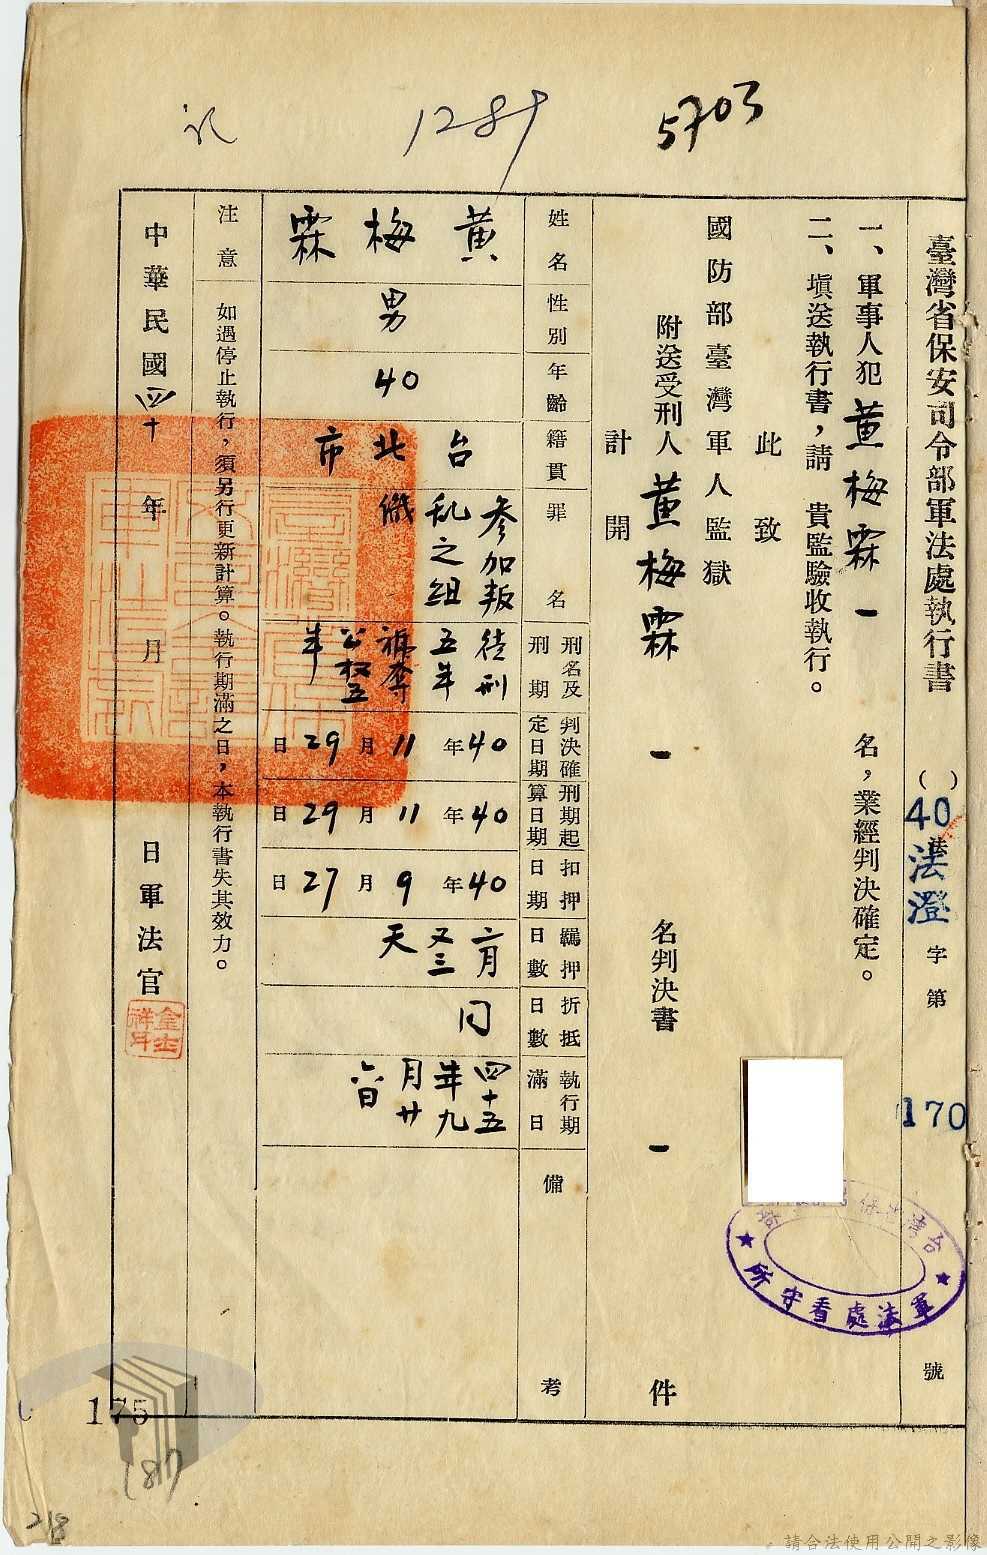 1289
5703
臺灣省保安司令部軍法處執行書
( )
40
法澄
字第
170
號
一、軍事人犯黃梅霖一名，業經判決確定。
二、塡送執行書，請 貴監驗收執行。
此致
國防部臺灣軍人監獄
附送受刑人黃梅霖一名判決書一件
計開
姓名
黃梅霖
性別
男
年齡
40
籍貫
台北市
罪名
參加叛
乱之組
織
刑名及
刑期
徒刑
五年
褫奪
公权五
年
判決確
定日期
40年11月29日
刑期起
算日期
40年11月29日
扣押
日期
40年9月27日
羈押
日數
二月
又三
天
折抵
日數
同
執行期
滿日
四十五
年九
月廿
六日
備考
注意
如過停止執行，須另行更新計算。執行期滿之日，本執行書失其效力。
中華民國四十年 月 日軍法官
台灣省保
軍法處看守所
175
187
218
請合法使用公開之影像